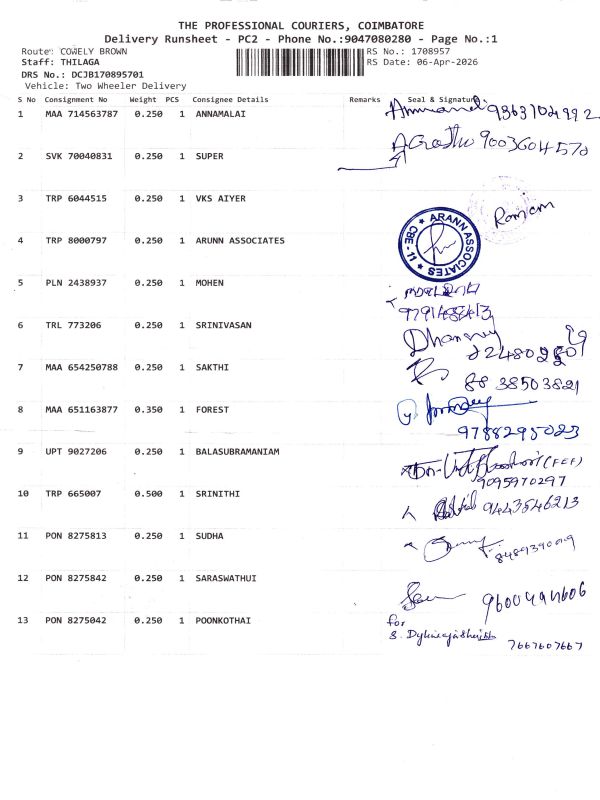 THE PROFESSIONAL COURIERS, COIMBATORE
Delivery Runsheet - PC2 - Phone No.:9047080280 - Page No.:1
Route: COWELY BROWN RS No.: 1708957
Staff: THILAGA RS Date: 06-Apr-2026
DRS No.: DCJB170895701
Vehicle: Two Wheeler Delivery
S No Consignment No Weight PCS Consignee Details Remarks Seal & Signature
1 MAA 714563787 0.250 1 ANNAMALAI 9363104992
2 SVK 70040831 0.250 1 SUPER 9003604570
3 TRP 6044515 0.250 1 VKS AIYER
4 TRP 8000797 0.250 1 ARUNN ASSOCIATES
ARANN ASSOCIATES CBE - 11
5 PLN 2438937 0.250 1 MOHEN
6 TRL 773206 0.250 1 SRINIVASAN
7 MAA 654250788 0.250 1 SAKTHI
88 38503821
8 MAA 651163877 0.350 1 FOREST
9788295023
9 UPT 9027206 0.250 1 BALASUBRAMANIAM
9095970297
10 TRP 665007 0.500 1 SRINITHI 9443546213
11 PON 8275813 0.250 1 SUDHA
12 PON 8275842 0.250 1 SARASWATHUI
13 PON 8275042 0.250 1 POONKOTHAI for
7667607667